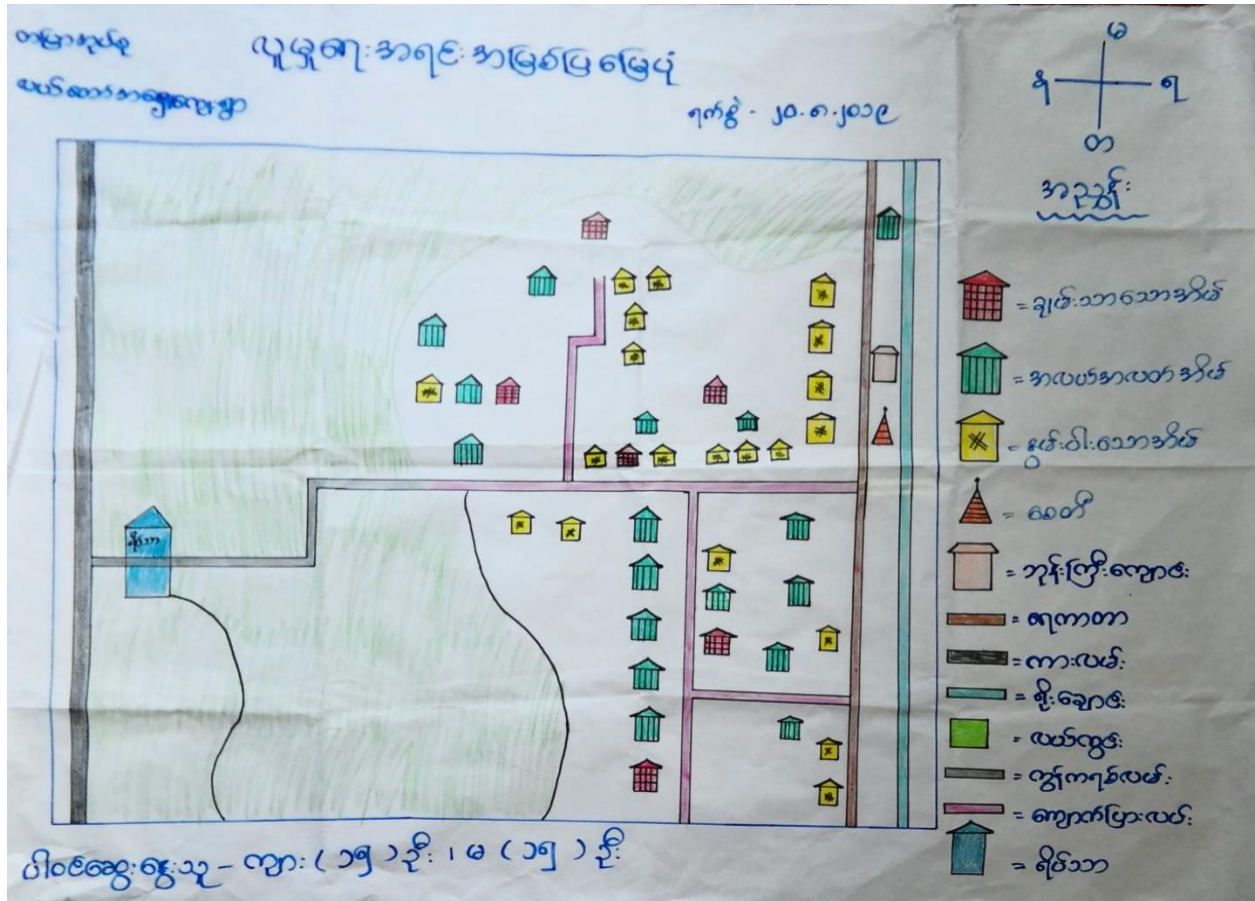 လူမှုရေးအရင်းအမြစ်ပြမြေပုံ
ရက်စွဲ - ၂၀.၈.၂၀၁၉
မ
န
ရ
တ
အညွှန်း
= ချမ်းသာသောအိမ်
= အလယ်အလတ်အိမ်
= နွမ်းပါးသောအိမ်
= စေတီ
= ဘုန်းကြီးကျောင်း
= ရေကာတာ
= ကားလမ်း
= စိုးချောင်း
= လယ်ကွင်း
= ကွန်ကရစ်လမ်း
= ကျောက်ပြားလမ်း
= ရိပ်သာ
ရိပ်သာ
ပါဝင်ဆွေးနွေးသူ - ကျား (၁၅) ဦး ၊ မ (၁၅) ဦး